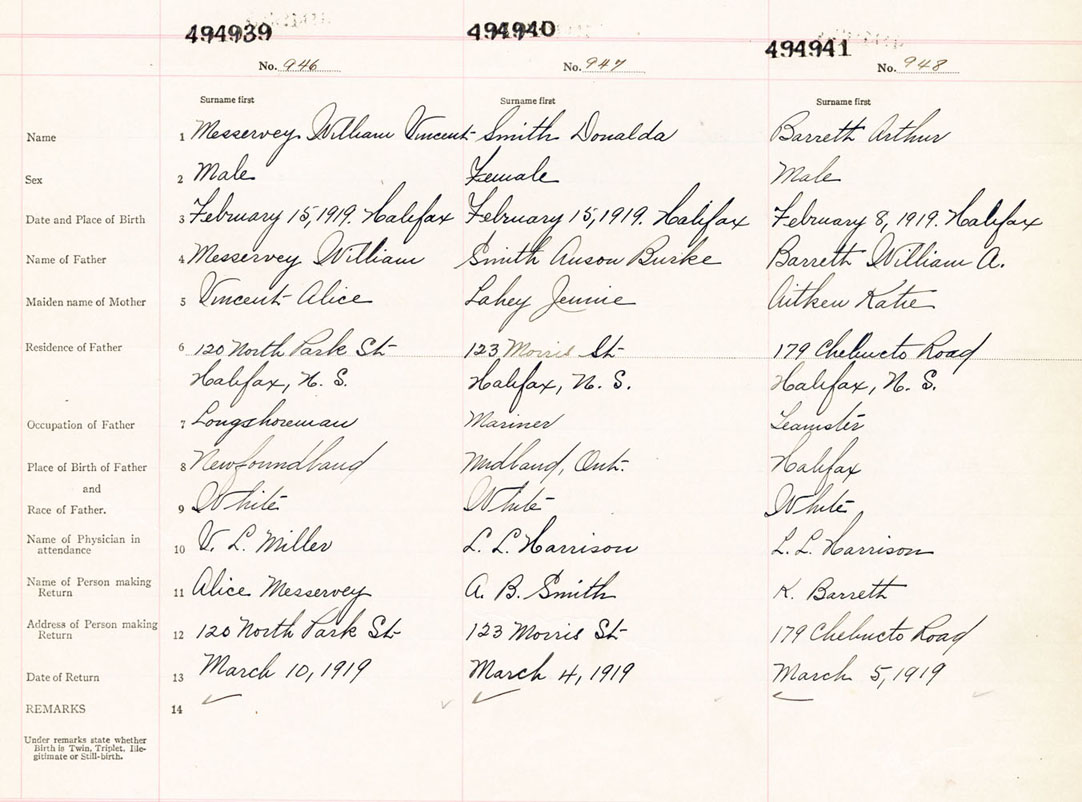 494939 494940 494941
No. 946 No. 947 No. 948
Surname first Surname first Surname first
Name 1 Messervey William Vincent Smith Donalda Barrett Arthur
Sex 2 Male Female Male
Date and Place of Birth 3 February 15, 1919. Halifax February 15, 1919. Halifax February 8, 1919. Halifax
Name of Father 4 Messervey William Smith Anson Burke Barrett William A.
Maiden name of Mother 5 Vincent Alice Lahey Jennie Aitken Katie
Residence of Father 6 120 North Park St 123 Morris St 179 Chebucto Road
Halifax, N. S. Halifax, N. S. Halifax, N. S.
Occupation of Father 7 Longshoreman Mariner Teamster
Place of Birth of Father 8 Newfoundland Midland, Ont. Halifax
and
Race of Father. 9 White White White
Name of Physician in
attendance 10 V. L. Miller L. L. Harrison L. L. Harrison
Name of Person making
Return 11 Alice Messervey A. B. Smith K. Barrett
Address of Person making
Return 12 120 North Park St 123 Morris St 179 Chebucto Road
Date of Return 13 March 10, 1919 March 4, 1919 March 5, 1919
REMARKS 14
Under remarks state whether
Birth is Twin, Triplet, Ille-
gitimate or Still-birth.